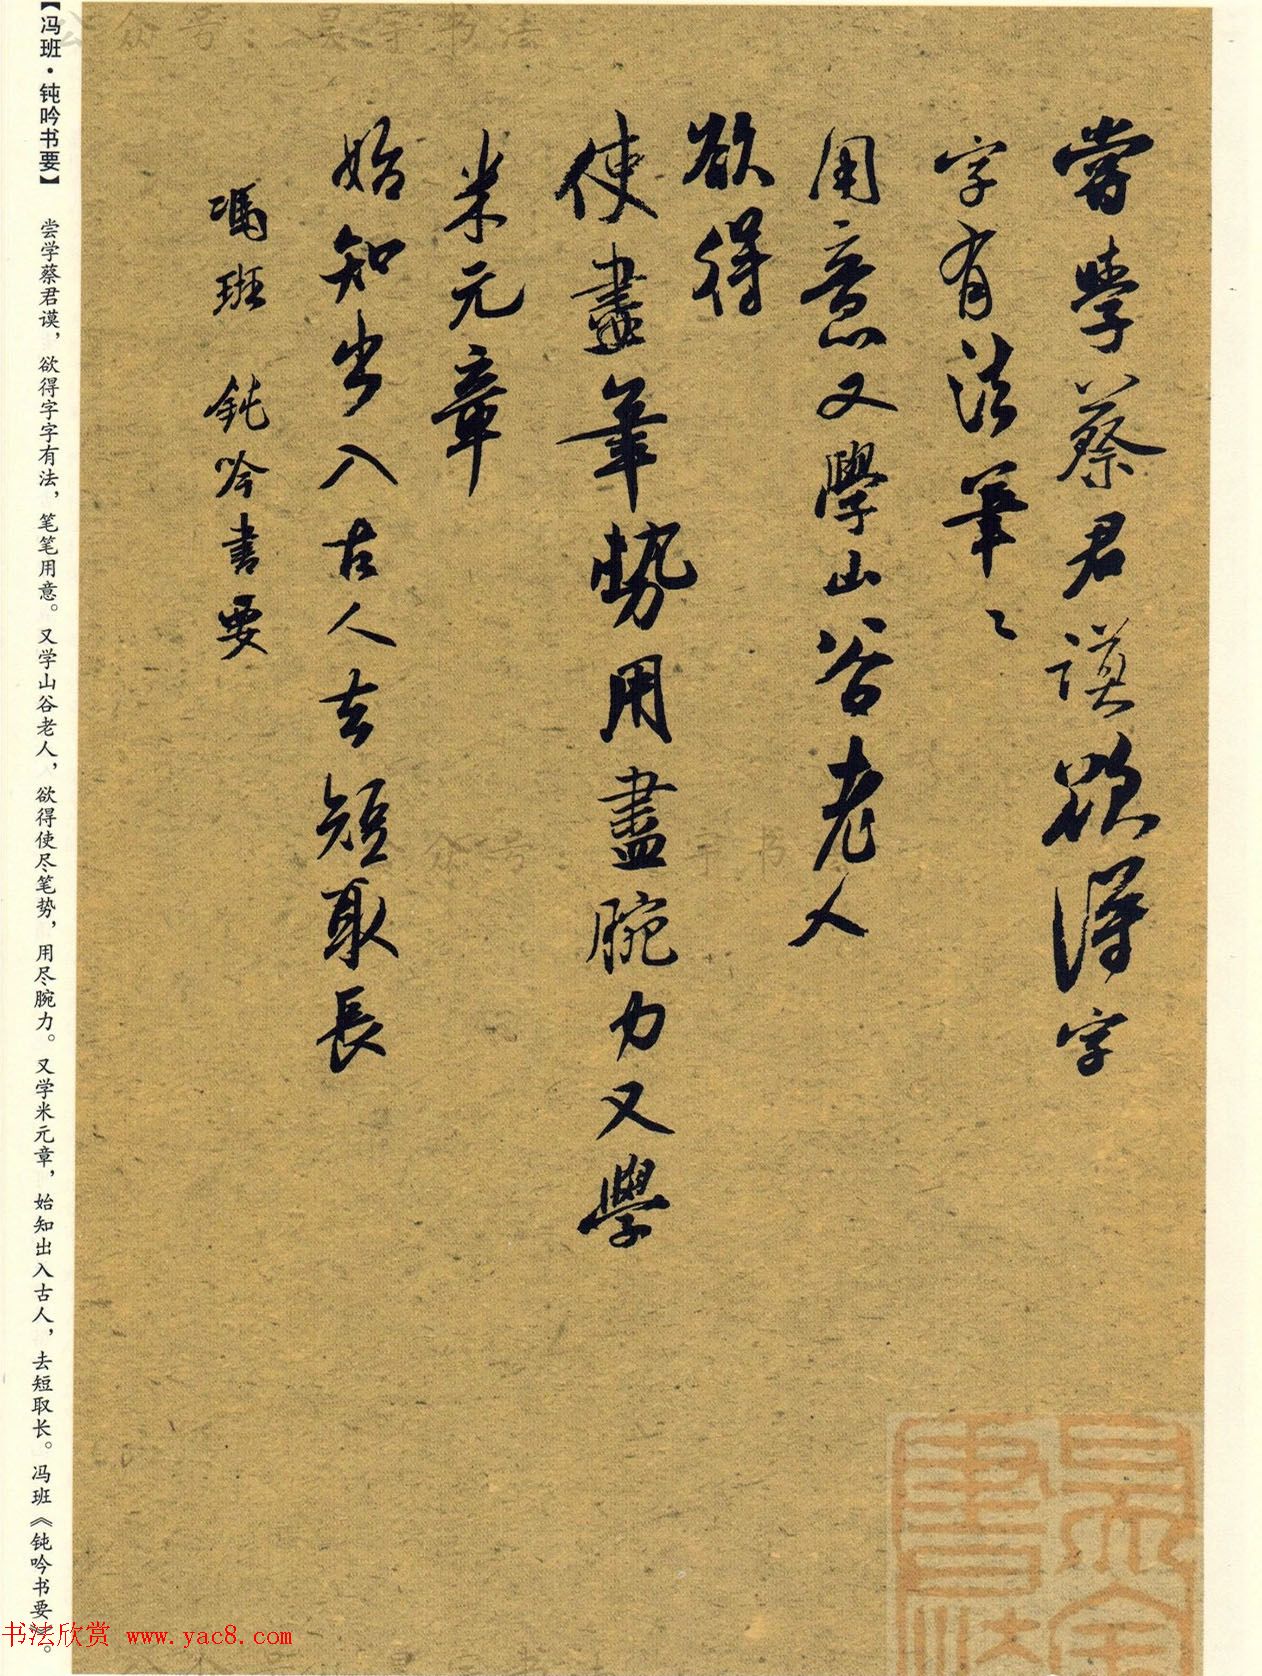 嘗學蔡君謨欲得字
字有法筆〻
用意又學山谷老人
欲得
使盡筆勢用盡腕力又學
米元章
始知出入古人去短取長
馮班 鈍吟書要
【冯班·钝吟书要】 尝学蔡君谟，欲得字字有法，笔笔用意。又学山谷老人，欲得使尽笔势，用尽腕力。又学米元章，始知出入古人，去短取长。冯班《钝吟书要》。
公众号：昊宇书法
书法欣赏 www.yac8.com